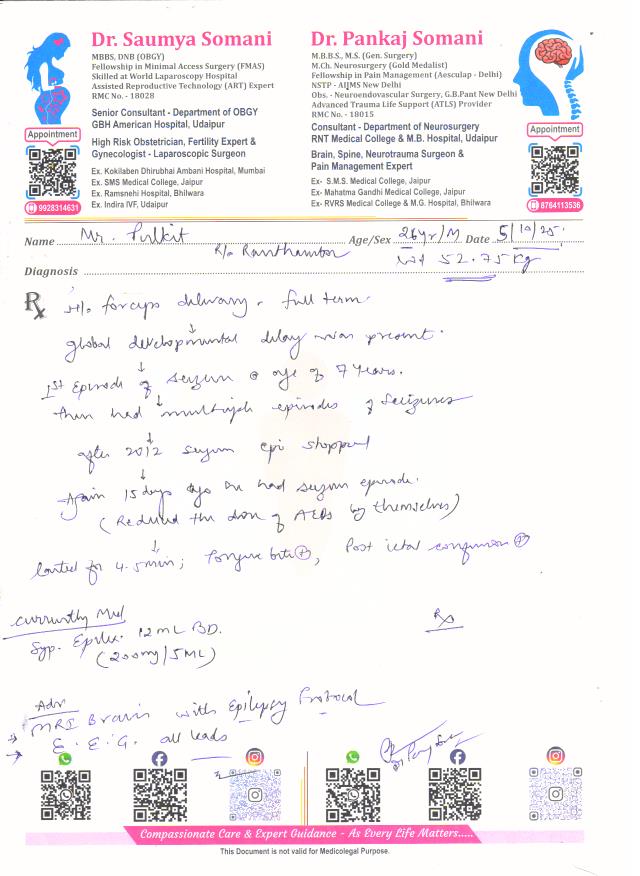 Dr. Saumya Somani
MBBS, DNB (OBGY)
Fellowship in Minimal Access Surgery (FMAS)
Skilled at World Laparoscopy Hospital
Assisted Reproductive Technology (ART) Expert
RMC No. - 18028
Senior Consultant - Department of OBGY
GBH American Hospital, Udaipur
High Risk Obstetrician, Fertility Expert &
Gynecologist - Laparoscopic Surgeon
Ex. Kokilaben Dhirubhai Ambani Hospital, Mumbai
Ex. SMS Medical College, Jaipur
Ex. Ramsnehi Hospital, Bhilwara
Ex. Indira IVF, Udaipur
Appointment
9928314631
Dr. Pankaj Somani
M.B.B.S., M.S. (Gen. Surgery)
M.Ch. Neurosurgery (Gold Medalist)
Fellowship in Pain Management (Aesculap - Delhi)
NSTP - AIJMS New Delhi
Obs. - Neuroendovascular Surgery, G.B.Pant New Delhi
Advanced Trauma Life Support (ATLS) Provider
RMC No. - 18015
Consultant - Department of Neurosurgery
RNT Medical College & M.B. Hospital, Udaipur
Brain, Spine, Neurotrauma Surgeon &
Pain Management Expert
Ex- S.M.S. Medical College, Jaipur
Ex- Mahatma Gandhi Medical College, Jaipur
Ex- RVRS Medical College & M.G. Hospital, Bhilwara
Appointment
8764113536
Name Mr. Pulkit Age/Sex 26yr/M Date 5/10/25
R/o Ranthambor wt 52.75 Kg
Diagnosis
Rx H/o forceps delivery - full term
↓
global developmental delay was present.
↓
1st Episode of seizure @ age of 7 years.
↓
then had multiple episodes of seizures
↓
after 2012 seizure epi stopped
↓
Again 15 days ago he had seizure episode.
(Reduced the dose of AEDs by themselves)
↓
lasted for 4-5 min; Tongue bite ⊕, Post ictal confusion ⊕
Currently Med
Rx
Syp. Epilex 12 ML BD.
(200mg/5ML)
Adv
→ MRI Brain with Epilepsy Protocol
→ E.E.G. all leads
Compassionate Care & Expert Guidance - As Every Life Matters.....
This Document is not valid for Medicolegal Purpose.